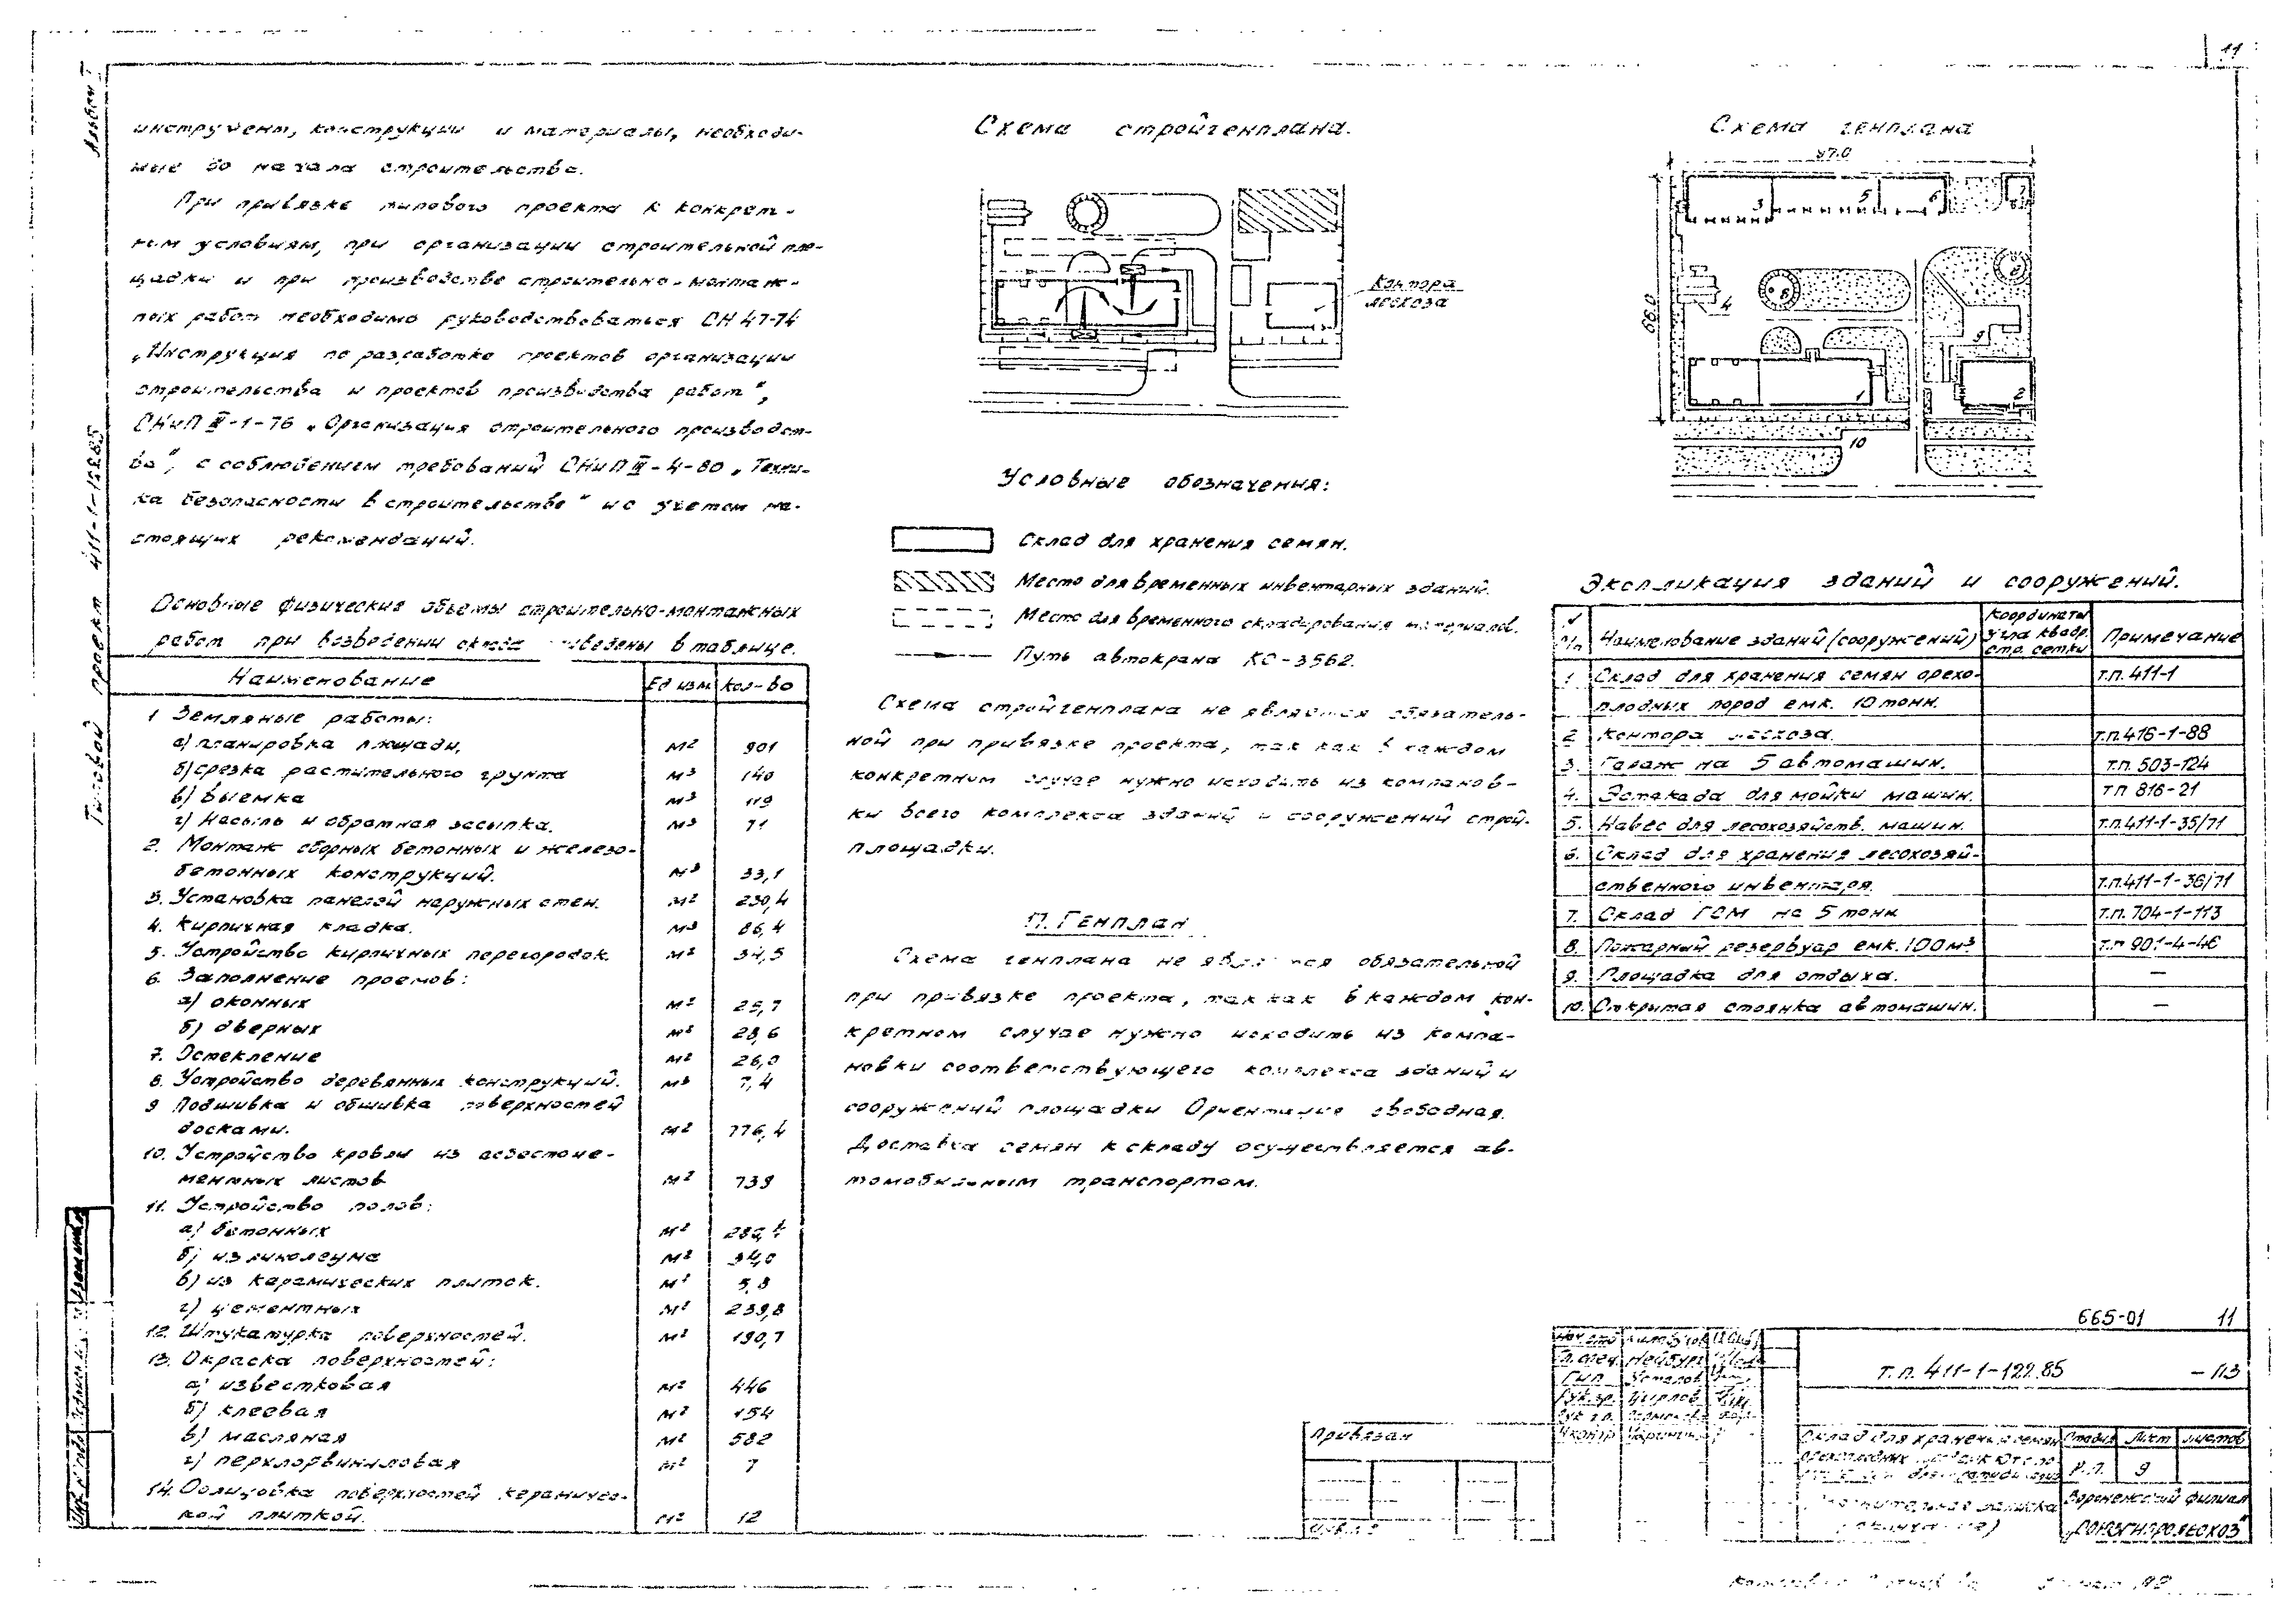 11
Альбом I
Типовой проект 411-1-122.85
инструмент, конструкции и материалы, необходи-
мые до начала строительства.
При привязке типового проекта к конкрет-
ным условиям, при организации строительной пло-
щадки и при производстве строительно-монтаж-
ных работ необходимо руководствоваться СН 47-74
„Инструкция по разработке проектов организации
строительства и проектов производства работ“,
СНиП III-1-76 „Организация строительного производст-
ва“, с соблюдением требований СНиП III-4-80 „Техни-
ка безопасности в строительстве“ и с учетом на-
стоящих рекомендаций.
Основные физические объемы строительно-монтажных
работ при возведении склада приведены в таблице.
Наименование Ед изм Кол-во
1 Земляные работы:
а) планировка площади, м² 901
б) срезка растительного грунта м³ 140
в) выемка м³ 119
г) насыпь и обратная засыпка. м³ 71
2. Монтаж сборных бетонных и железо-
бетонных конструкций. м³ 33,1
3. Установка панелей наружных стен. м² 230,4
4. Кирпичная кладка. м³ 86,4
5. Устройство кирпичных перегородок. м² 34,5
6. Заполнение проемов:
а) оконных м² 25,7
б) дверных м² 28,6
7. Остекление м² 26,0
8. Устройство деревянных конструкций. м³ 7,4
9 Подшивка и обшивка поверхностей
досками. м² 776,4
10. Устройство кровли из асбестоце-
ментных листов м² 739
11. Устройство полов:
а) бетонных м²
б) из линолеума м² 34,0
в) из керамических плиток. м² 5,8
г) цементных м² 239,8
12. Штукатурка поверхностей. м² 190,7
13. Окраска поверхностей:
а) известковая м² 446
б) клеевая м² 154
в) масляная м² 582
г) перхлорвиниловая м² 7
14. Облицовка поверхностей керамичес-
кой плиткой. м² 12
Схема стройгенплана.
Контора
лесхоза
Условные обозначения:
Склад для хранения семян.
Место для временных инвентарных зданий.
Место для временного складирования материалов.
Путь автокрана КС-3562.
Схема стройгенплана не является обязатель-
ной при привязке проекта, так как в каждом
конкретном случае нужно исходить из компанов-
ки всего комплекса зданий и сооружений строй-
площадки.
П. Генплан
Схема генплана не является обязательной
при привязке проекта, так как в каждом кон-
кретном случае нужно исходить из компа-
новки соответствующего комплекса зданий и
сооружений площадки Ориентация свободная.
Доставка семян к складу осуществляется ав-
томобильным транспортом.
Схема генплана
97.0
66.0
3 5 6 7
8
4 8
9
1 2
10
Экспликация зданий и сооружений.
№ п/п Наименование зданий (сооружений) Координаты угла квадр. стр. сетки Примечание
1 Склад для хранения семян орехо- т.п. 411-1
плодных пород емк. 10 тонн.
2 Контора лесхоза. т.п. 416-1-88
3. Гараж на 5 автомашин. т.п. 503-124
4. Эстакада для мойки машин. т п 816-21
5. Навес для лесохозяйств. машин. т.п. 411-1-35/71
6. Склад для хранения лесохозяй-
ственного инвентаря. т.п. 411-1-36/71
7. Склад ГСМ на 5 тонн т.п. 704-1-113
8. Пожарный резервуар емк. 100 м³ т.п 901-4-46
9. Площадка для отдыха. —
10. Открытая стоянка автомашин. —
665-01 11
т.п. 411-1-122.85 -ПЗ
Нач отд
Гл. спец. Нейбург
Гип
Рук. гр. Цирлов
Рук гр.
Н.контр
Привязан
Склад для хранения семян
Стадия Лист Листов
Р.П. 9
Пояснительная записка
Воронежский филиал
„Союзгипролесхоз“